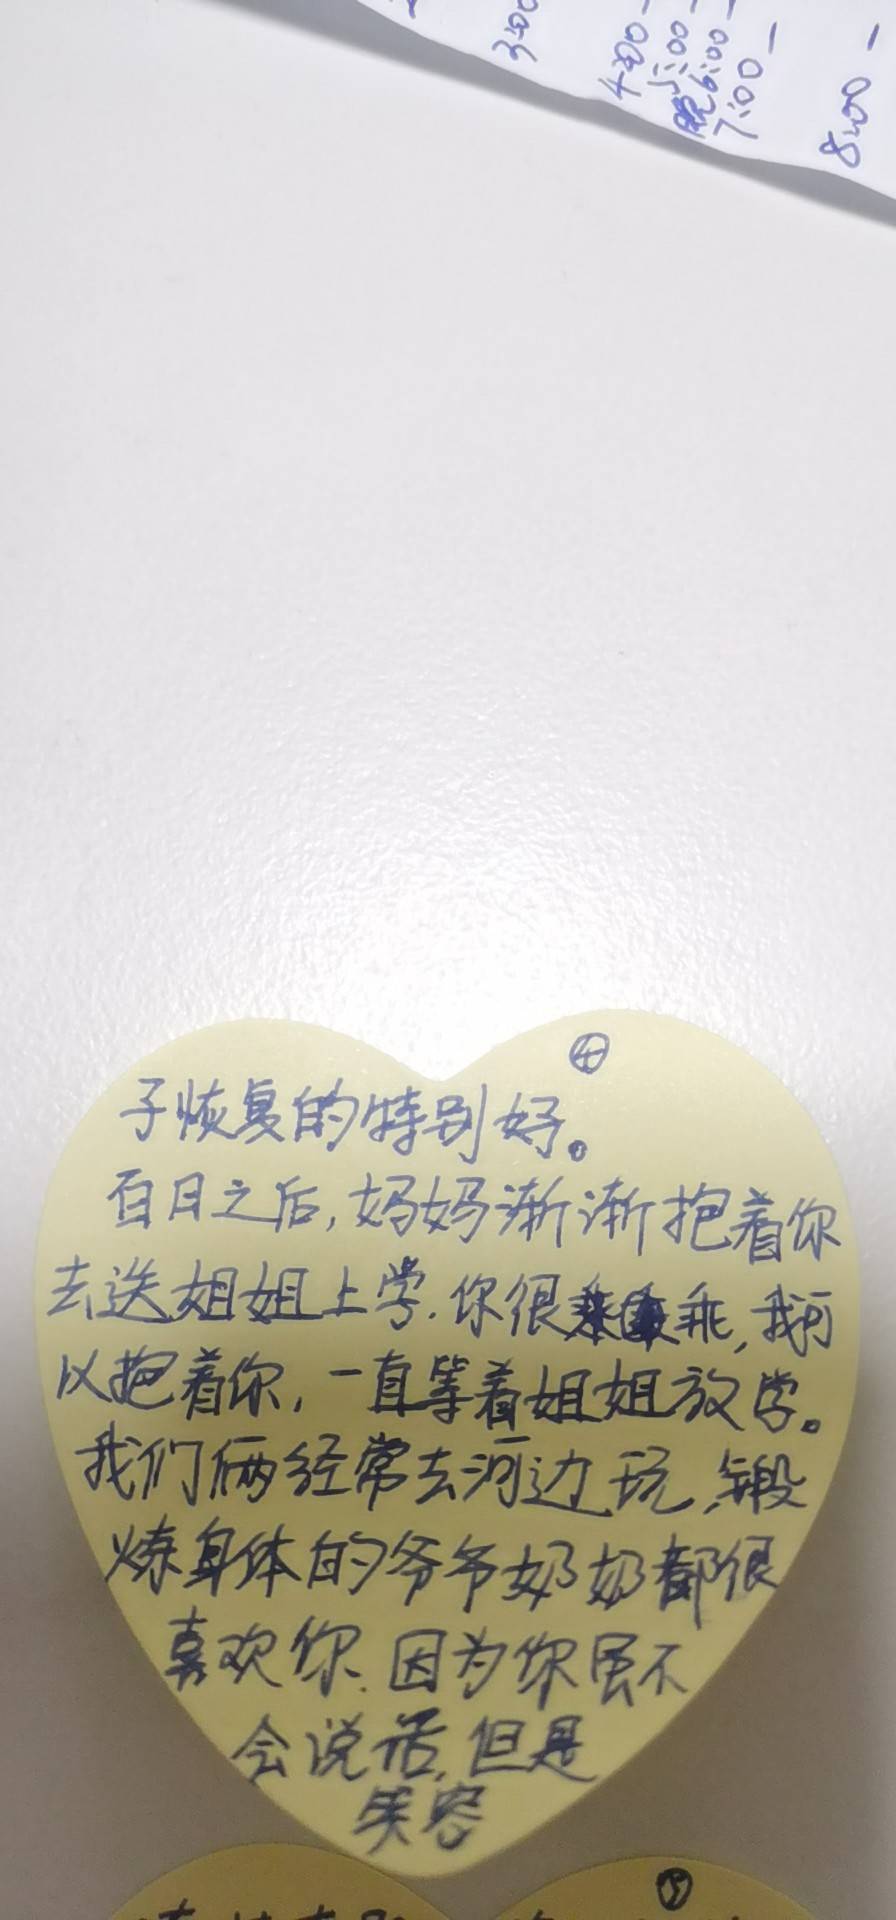 3:00
4:00-
5:00-
6:00-
7:00-
8:00-
④
子恢复的特别好。
百日之后,妈妈渐渐抱着你
去送姐姐上学.你很乖,我可
以抱着你,一直等着姐姐放学。
我们俩经常去河边玩,锻
炼身体的爷爷奶奶都很
喜欢你.因为你虽不
会说话,但是
笑容
⑤